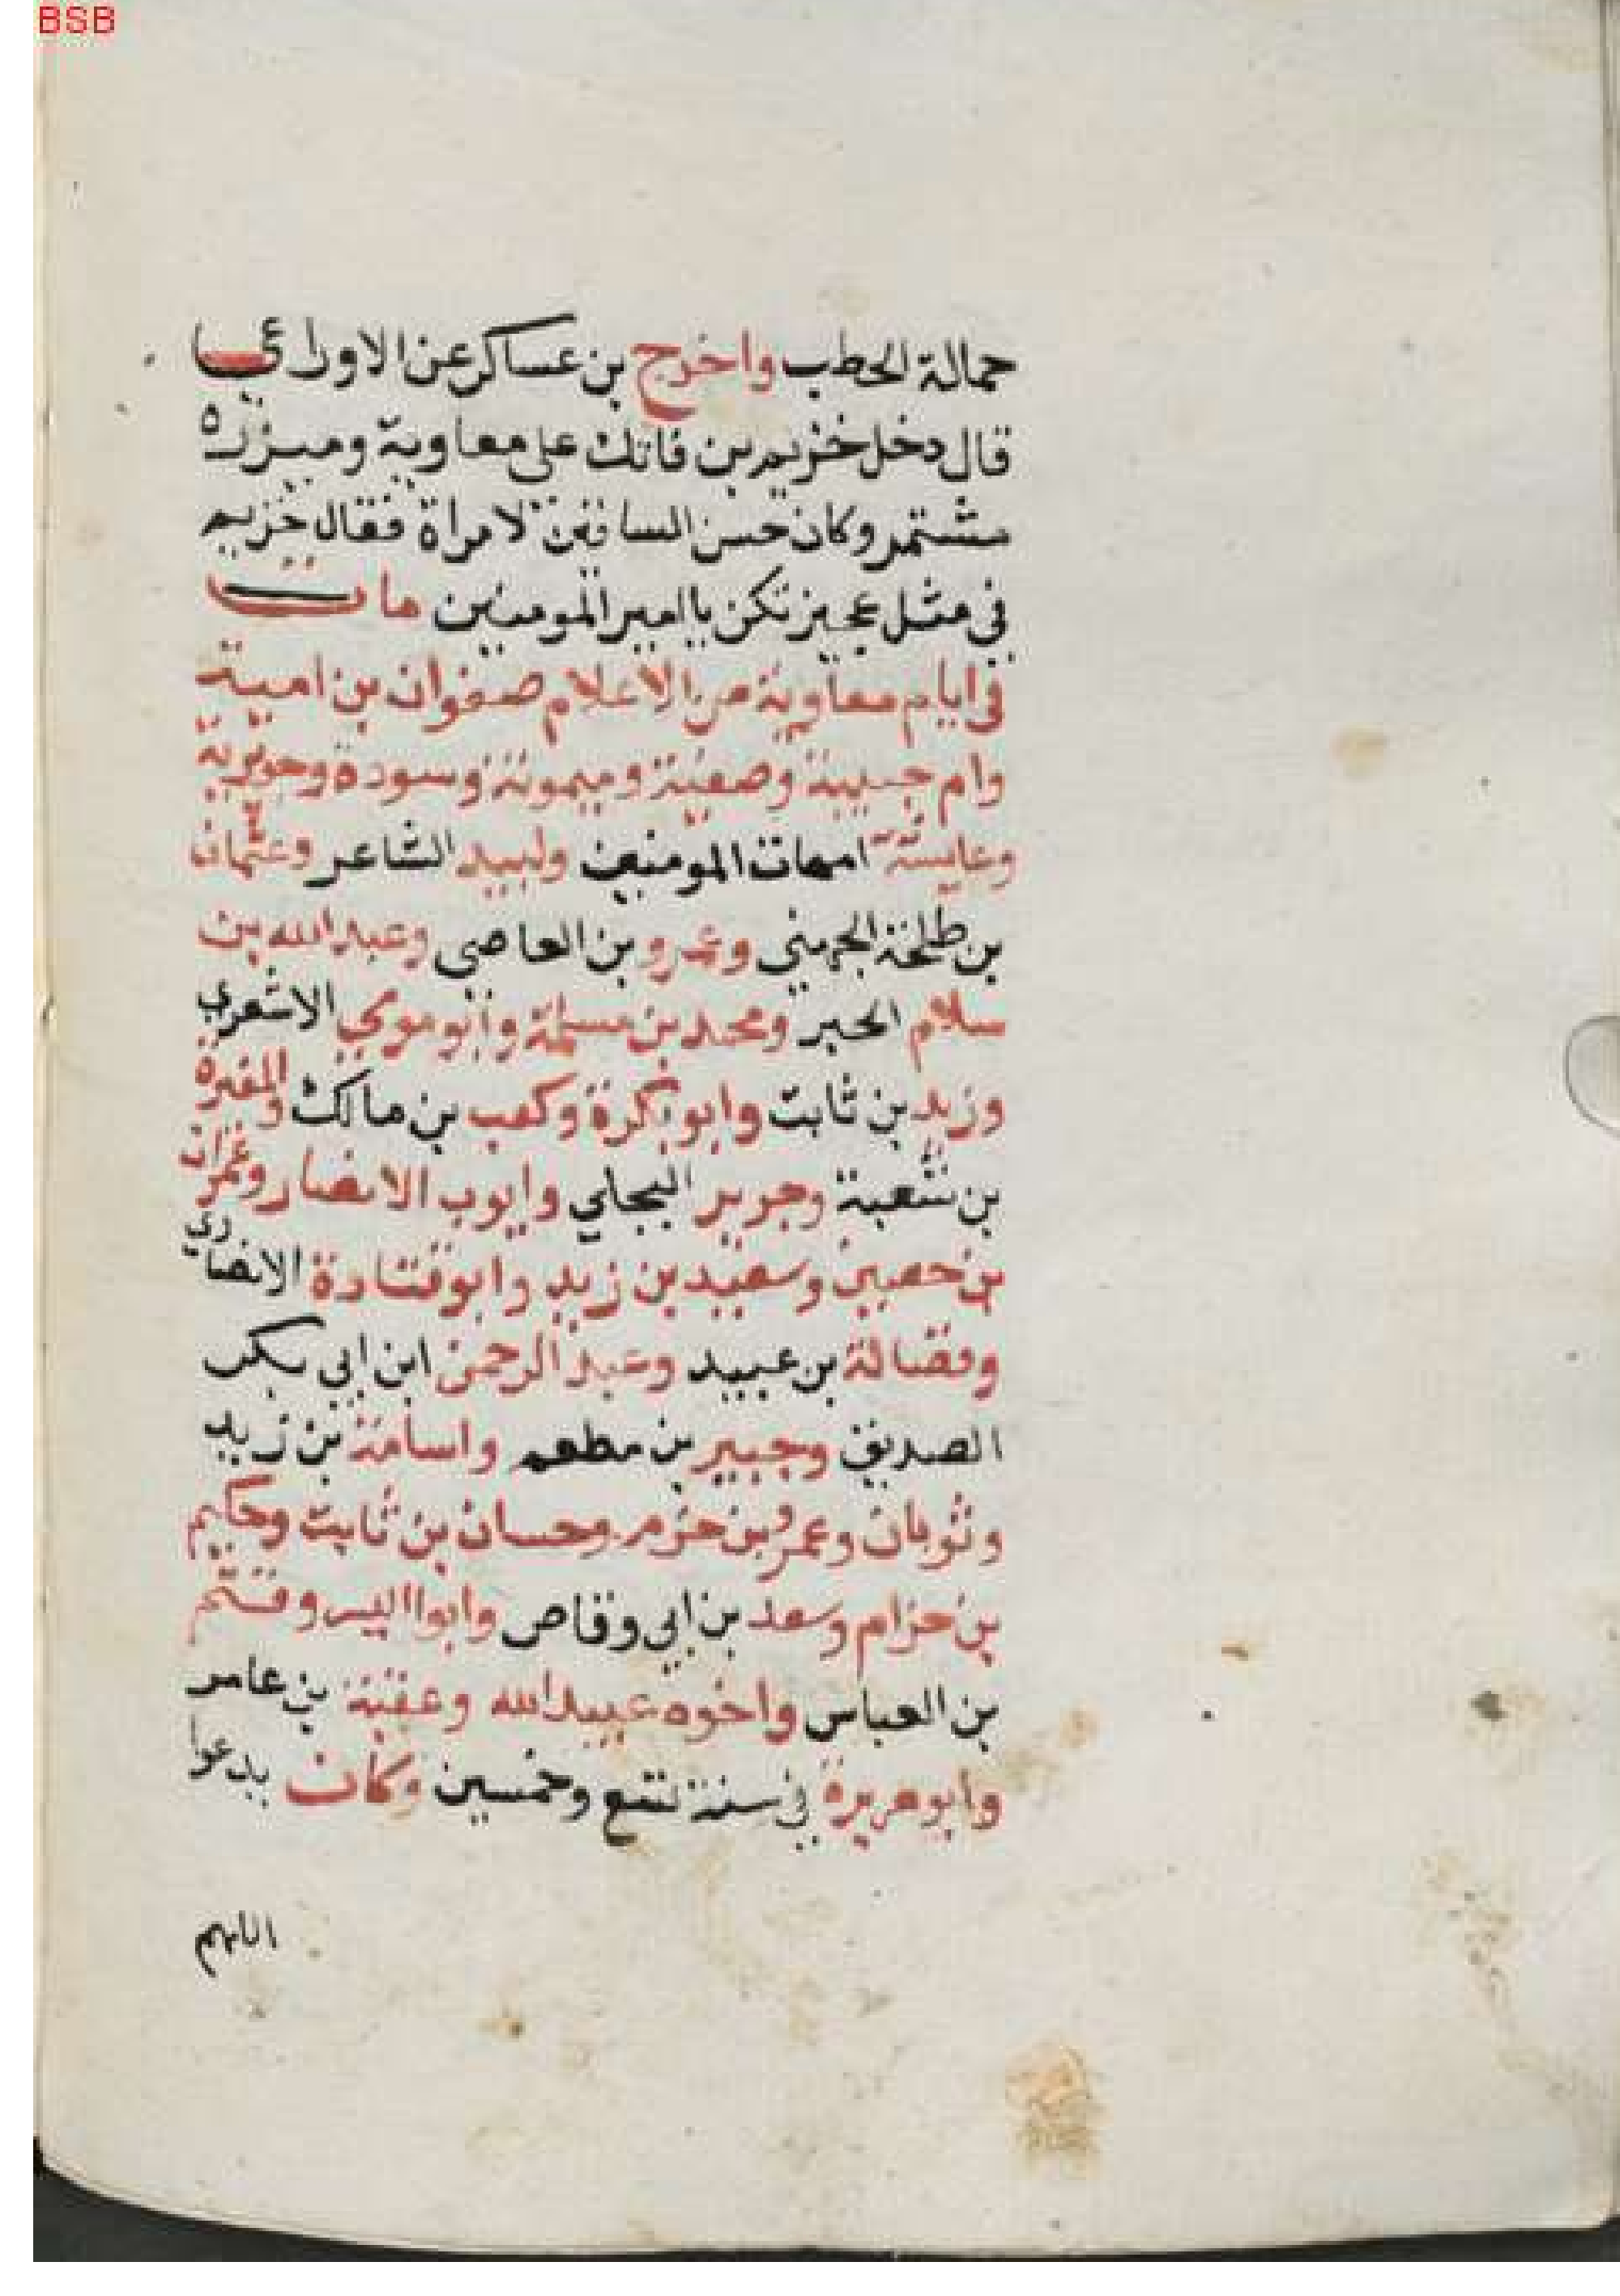 BSB
حمالة الحطب واخرج بن عساكر عن الاوزاعي
قال دخل خزيم بن فاتك على معاوية وميزره
مشتمر وكان حسن الساقين لامراة فقال خزيم
في مثل عجيزتكن ياامير المومنين مات
في ايام معاوية من الاعلام صفوان بن امية
وام حبيبة وصفية وميمونة وسودة وجويرية
وعايشة امهات المومنين ولبيد الشاعر وعثمان
بن طلحة الجهني وعمرو بن العاصي وعبد الله بن
سلام الحبر ومحمد بن مسلمة وابو موسي الاشعري
وزيد بن ثابت وابو بكرة وكعب بن مالك والمغيرة
بن شعبة وجرير البجلي وايوب الانصار وعمران
بن حصين وسعيد بن زيد وابو قتادة الانصاري
وفضالة بن عبيد وعبد الرحمن ابن ابي بكر
الصديق وجبير بن مطعم واسامة بن زيد
وثوبان وعمرو بن حزم وحسان بن ثابت وحكيم
بن حزام وسعد بن ابي وقاص وابوا اليسر وقثم
بن العباس واخوه عبيد الله وعقبة بن عامر
وابو هريرة في سنة تسع وخمسين وكان يدعوا
اللهم